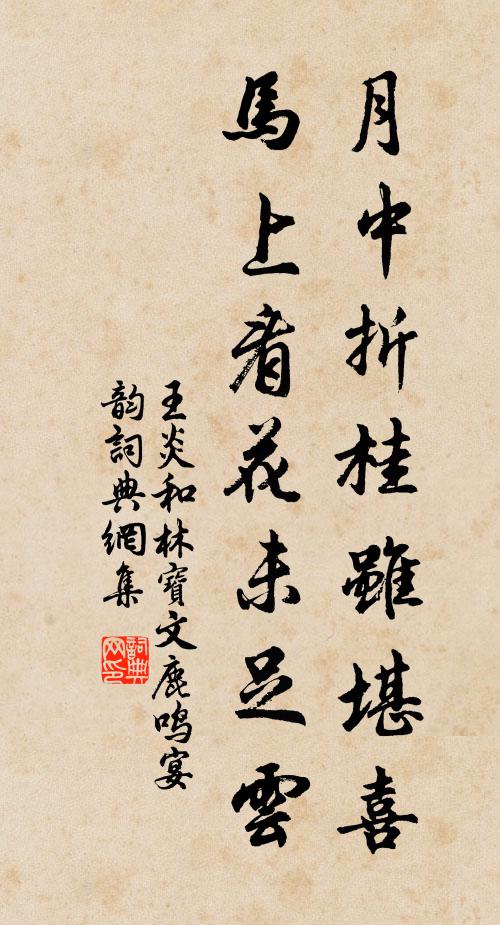 月中折桂雖堪喜
馬上看花未足雲
王炎和林寶文鹿鳴宴
韵詞典網集
詞典
网印